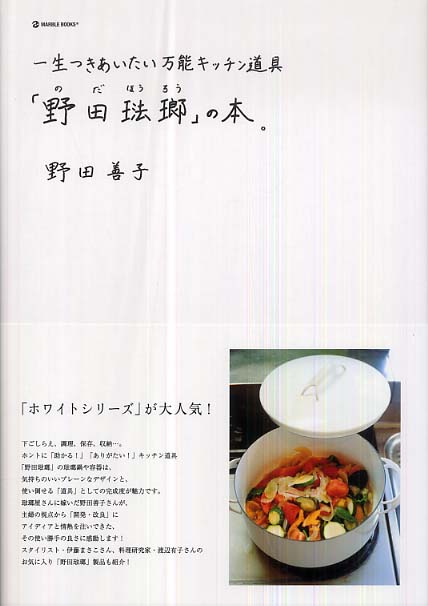 MARBLE BOOKS®
一生つきあいたい万能キッチン道具
のだほうろう
「野田琺瑯」の本。
野田善子
「ホワイトシリーズ」が大人気!
下ごしらえ、調理、保存、収納…。
ホントに「助かる!」「ありがたい!」キッチン道具
「野田琺瑯」の琺瑯鍋や容器は、
気持ちのいいプレーンなデザインと、
使い倒せる「道具」としての完成度が魅力です。
琺瑯屋さんに嫁いだ野田善子さんが、
主婦の視点から「開発・改良」に
アイディアと情熱を注いできた、
その使い勝手の良さに感動します!
スタイリスト・伊藤まさこさん、料理研究家・渡辺有子さんの
お気に入り「野田琺瑯」製品も紹介!